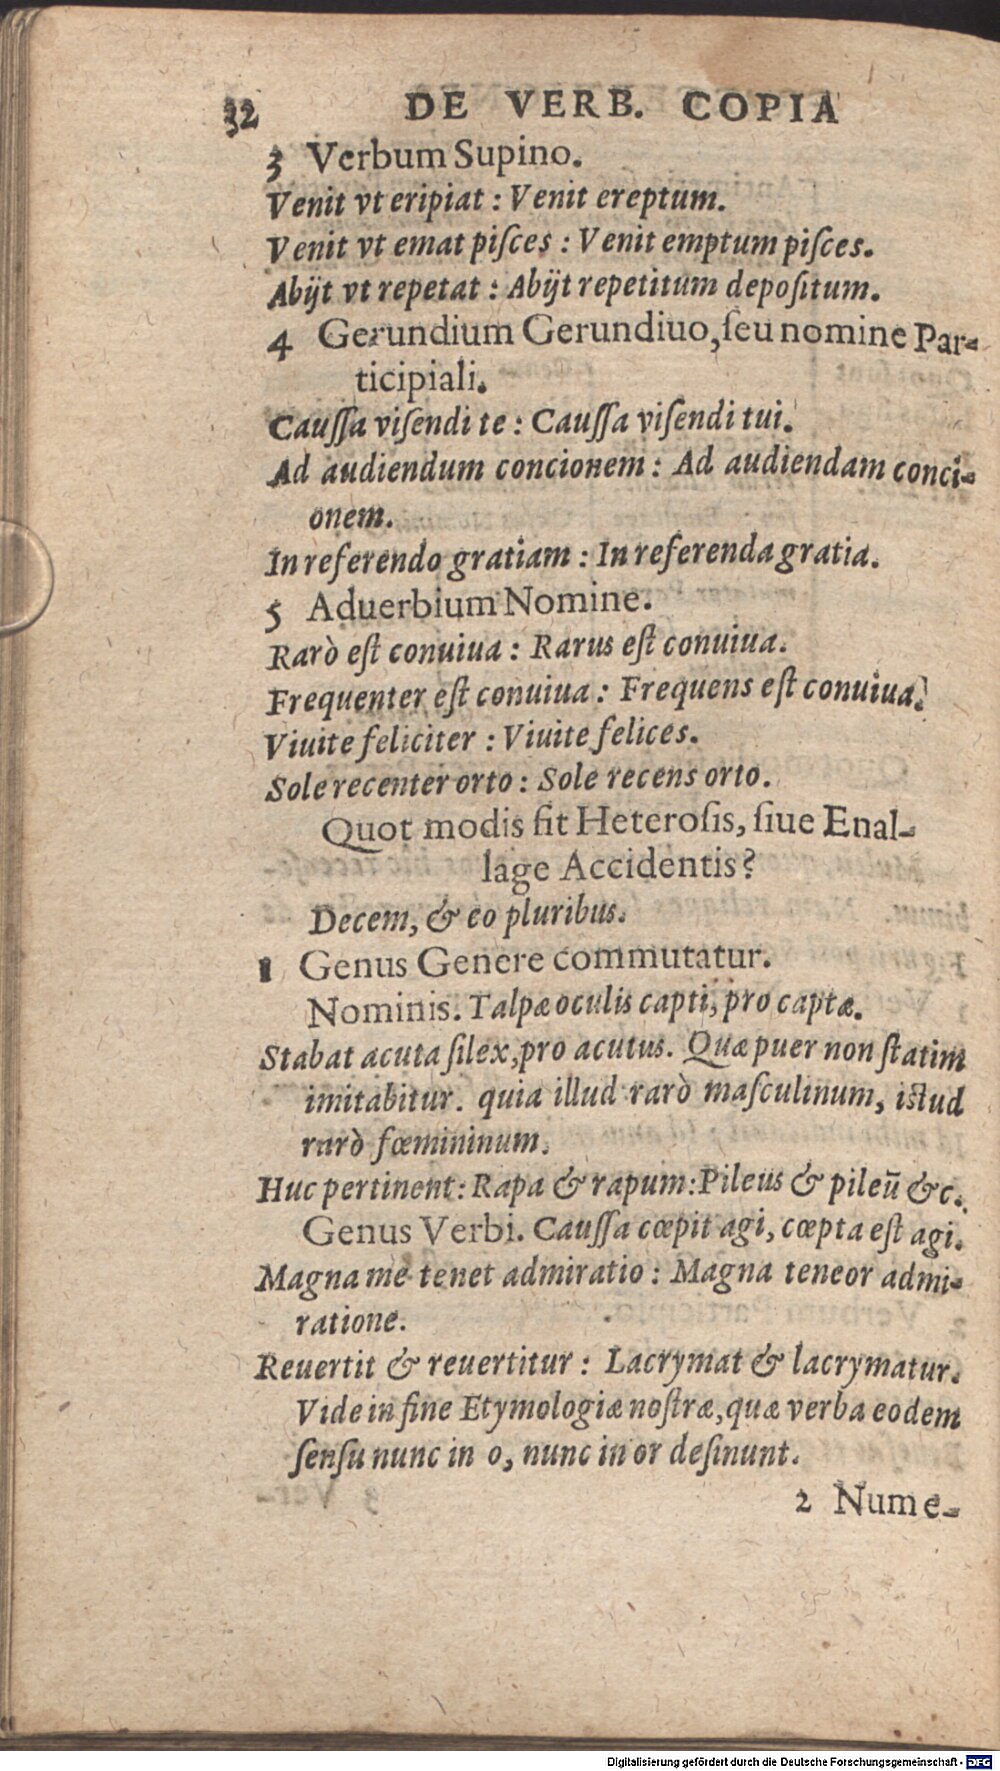 32 DE VERB. COPIA
3 Verbum Supino.
Venit vt eripiat : Venit ereptum.
Venit vt emat piſces : Venit emptum piſces.
Abijt vt repetat : Abijt repetitum depoſitum.
4 Gerundium Gerundiuo, ſeu nomine Par-
ticipiali.
Cauſſa viſendi te : Cauſſa viſendi tui.
Ad audiendum concionem : Ad audiendam conci-
onem.
In referendo gratiam : In referenda gratia.
5 Aduerbium Nomine.
Rarò eſt conuiua : Rarus eſt conuiua.
Frequenter eſt conuiua : Frequens eſt conuiua.
Viuite feliciter : Viuite felices.
Sole recenter orto : Sole recens orto.
Quot modis fit Heteroſis, ſiue Enal-
lage Accidentis?
Decem, & eo pluribus.
1 Genus Genere commutatur.
Nominis. Talpæ oculis capti, pro captæ.
Stabat acuta ſilex, pro acutus. Quæ puer non ſtatim
imitabitur. quia illud rarò maſculinum, iſtud
rarò fœmininum.
Huc pertinent: Rapa & rapum: Pileus & pileũ &c.
Genus Verbi. Cauſſa cœpit agi, cœpta eſt agi.
Magna me tenet admiratio : Magna teneor admi-
ratione.
Reuertit & reuertitur : Lacrymat & lacrymatur.
Vide in fine Etymologiæ noſtræ, quæ verba eodem
ſenſu nunc in o, nunc in or deſinunt.
2 Nume-
Digitalisierung gefördert durch die Deutsche Forschungsgemeinschaft - DFG